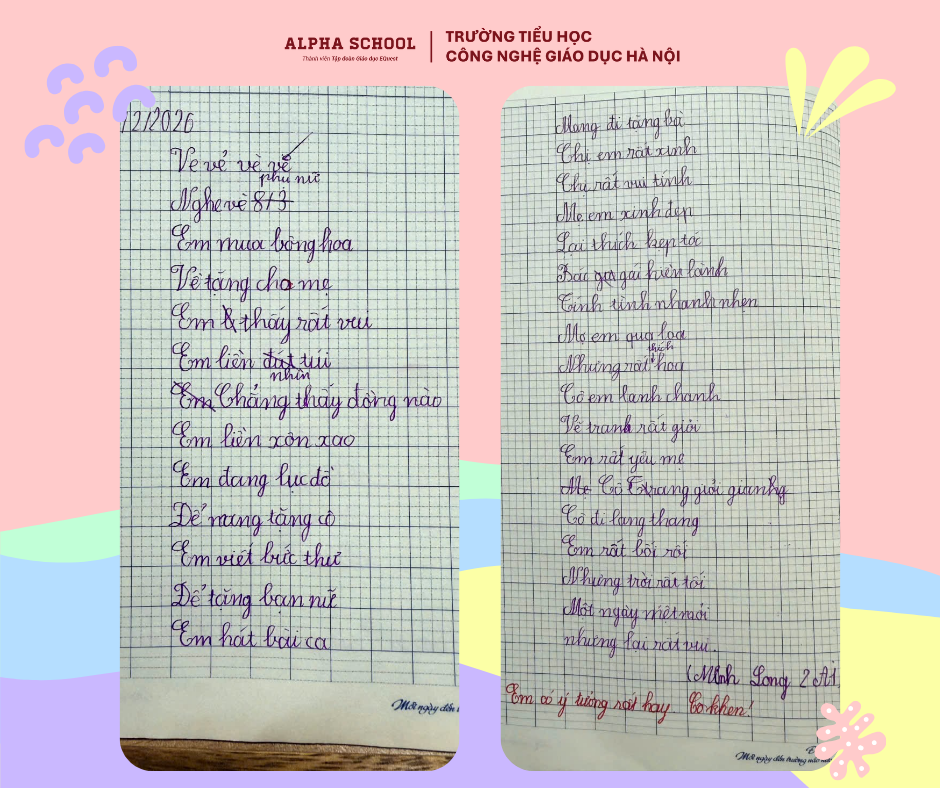 ALPHA SCHOOL
Thành viên Tập đoàn Giáo dục EQuest
TRƯỜNG TIỂU HỌC
CÔNG NGHỆ GIÁO DỤC HÀ NỘI
/2/2026
Ve vẻ vè vè
phụ nữ
Nghe vè 8/3
Em mua bông hoa
Về tặng cho mẹ
Em thấy rất vui
Em liền đút túi
nhìn
Em Chẳng thấy đồng nào
Em liền xôn xao
Em đang lục đồ
Để mang tặng cô
Em viết bức thư
Để tặng bạn nữ
Em hát bài ca
Mỗi ngày đến
Mang đi tặng bà
Chị em rất xinh
Chị rất vui tính
Mẹ em xinh đẹp
Lại thích kẹp tóc
Bác gái hiền lành
Tính tình nhanh nhẹn
Mẹ em qua loa
thích
Nhưng rất hoa
Cô em lanh chanh
Vẽ tranh rất giỏi
Em rất yêu mẹ
Mẹ Cô Trang giỏi giang
Cô đi lang thang
Em rất bối rối
Nhưng trời rất tối
Một ngày mệt mỏi
nhưng lại rất vui.
(Minh Long 2A1
Em có ý tưởng rất hay. Cô khen!
Mỗi ngày đến trường